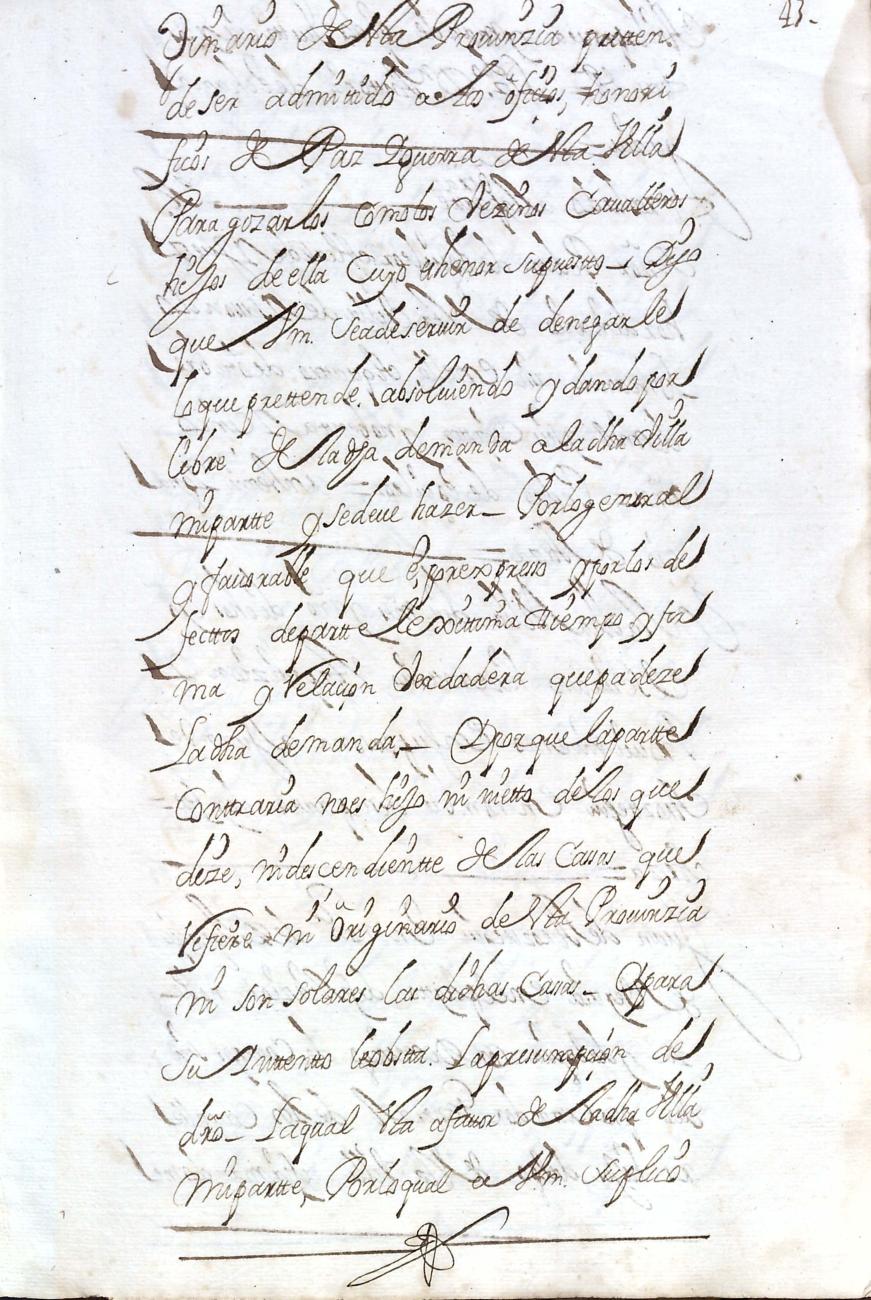 43.
Jinario de Sta Prouinzia pretten
de ser admitido a los ofiçios, honori
ficos de Paz Y guerra de Sta Villa
Para gozarlos como los Vezinos Caualleros
hijos de ella Cuyo thenor supuesto – Digo
que Vm. Seadeseruir de denegarle
lo que prettende. absoluiendo y dando por
libre de la dha demanda a la dha Villa
mi partte y se deue hazer – Por lo general
y fauorable que è, por expreso y por los de
fecttos de partte lexitima ttiempo y for
ma y Relaçion Verdadera que padeze
La dha demanda – Y porque la partte
Conttraria no es hijo ni nietto de los que
dize, ni descendientte de las Cassas que
Refiere ni Originario de Sta Prouinzia
ni son solares las dichas Cassas – Y para
su Yntentto le obsta. La presumpçion de
dro – La qual Sta a fauor de la dha Villa
Mi partte, Por lo qual a Vm. Suplico